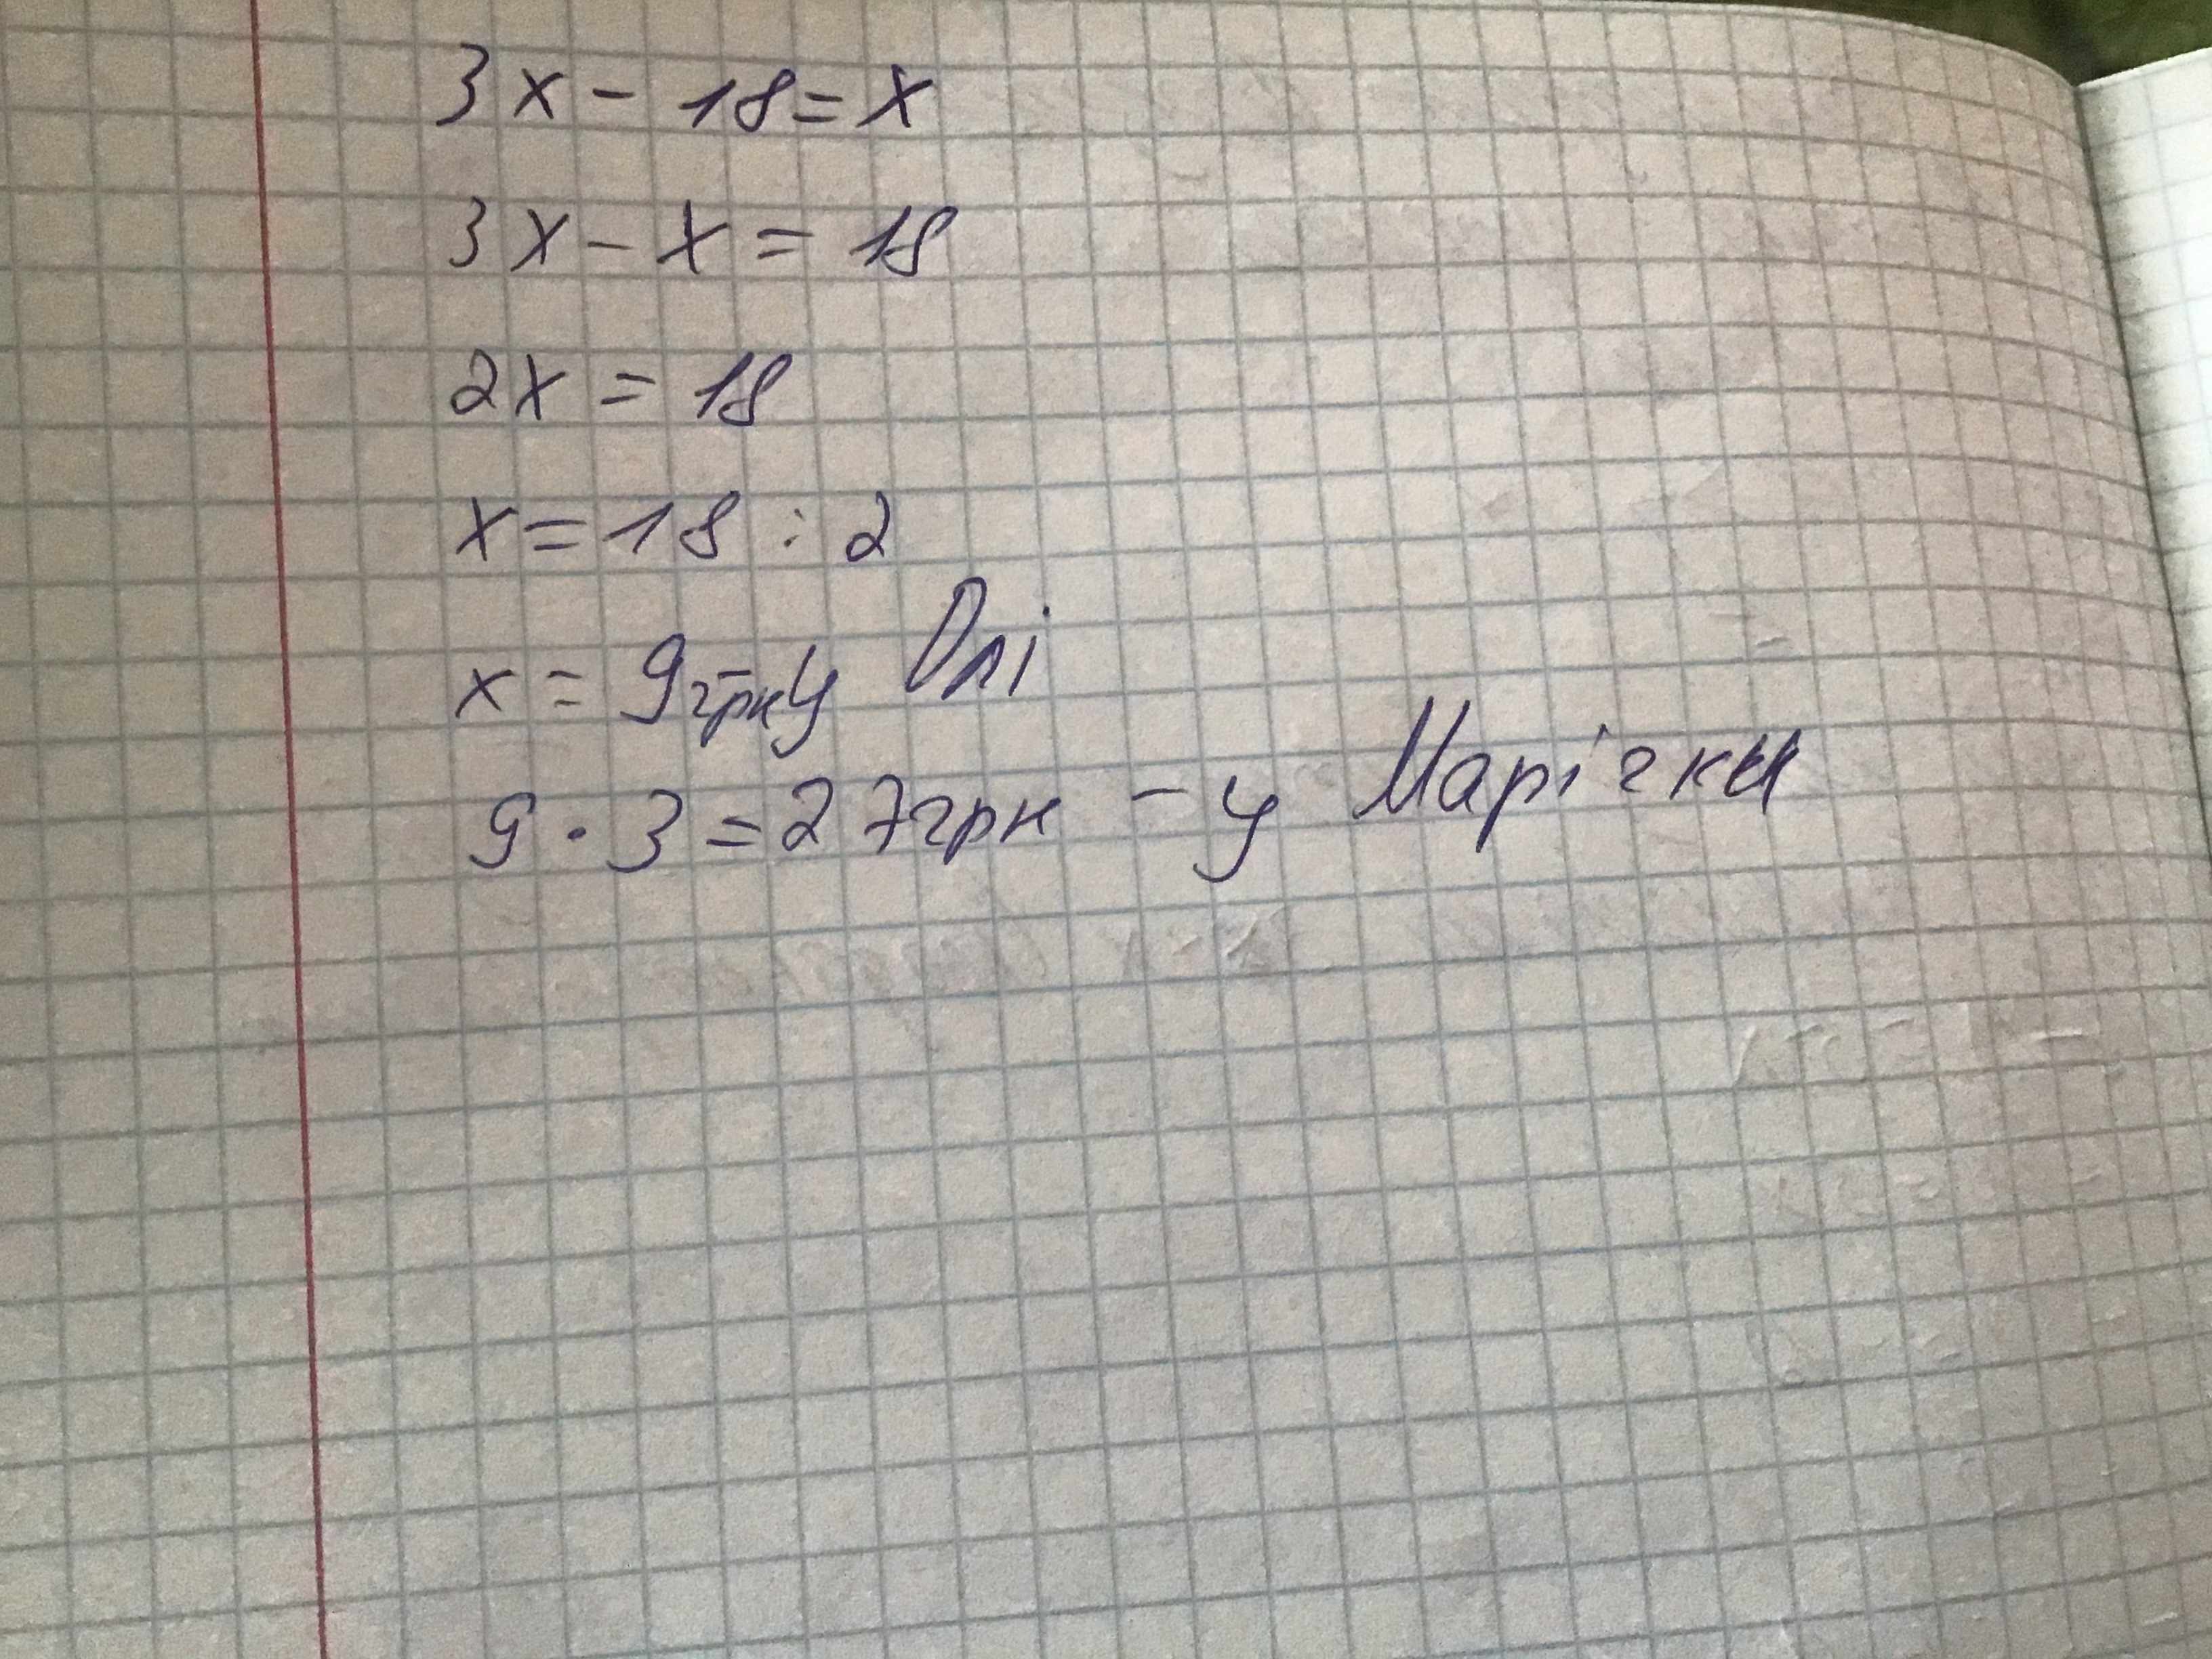 3x - 18 = x
3x - x = 18
2x = 18
x = 18 : 2
x = 9грн - у Олі
9 · 3 = 27грн - у Марічки